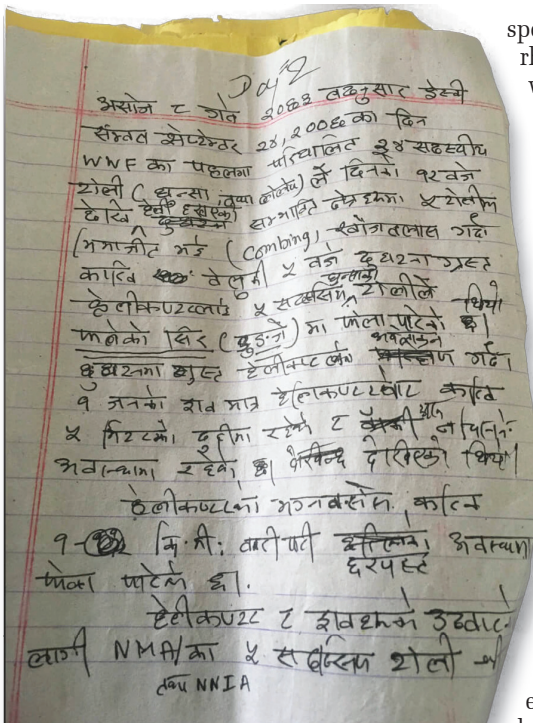 Day 2
असोज ८ गते २०६३ तदनुसार ईस्वी
सम्वत सेप्टेम्बर २४, २००६ का दिन
WWF का पहलमा परिचालित १४ सदस्यीय
टोली (घुन्सा, ले दिनको १२ बजे
देखि सम्भावित क्षेत्रहरुमा ५ टोलीमा
(Combing, खोजतलास गर्दा
करिब बेलुकी ५ बजे दुर्घटना ग्रस्त
हेलीकप्टरलाई ५ सदस्यिय घुन्साको टोलीले
फलेको शिर मा फेला पारेको थियो छ।
दुर्घटना ग्रस्त हेलीकप्टर अवलोकन गर्दा
१ जनको शव मात्र हेलिकप्टरबाट करिब
५ मिटरको दूरीमा रहेको र नचिनिने
अवस्थामा रहेको छ। देखिएको थियो।
हेलीकप्टरको भग्नावशेष करिब
१- कि.मी. वरीपरी छरपस्ट अवस्थामा
फेला पारेको छ।
हेलीकप्टर र शवहरुको उद्धारको
लागी NMA/का ५ सदस्यिय टोली
तथा NNIA
spe
rh
e